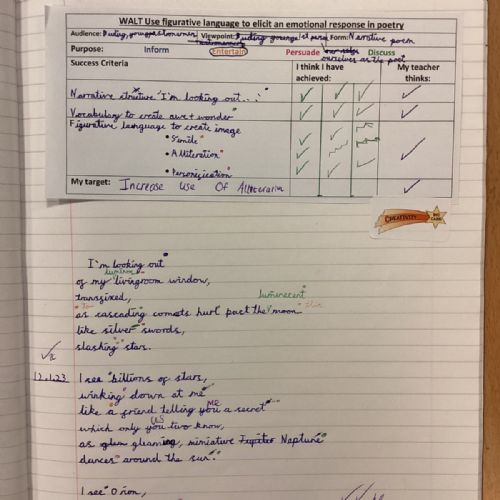 WALT Use figurative language to elicit an emotional response in poetry
Audience: Viewpoint: Form: Narrative poem
ourselves as the poet
Purpose: Inform Entertain Persuade Discuss
Success Criteria I think I have achieved: My teacher thinks:
Narrative structure 'I'm looking out...'
Vocabulary to create awe + wonder
Figurative language to create image
• Simile
• Alliteration
• Personification
My target: Increase use of Alliteration
CREATIVITY
I'm looking out
of my livingroom window,
transfixed,
luminecent
as cascading comets hurl past the moon
like silver swords,
slashing stars.
12.1.23 I see billions of stars,
winking down at me
me
like a friend telling you a secret
us
which only you two know,
as glem gleaming, miniature Jupiter Neptune
dances around the sun.
I see Orion,